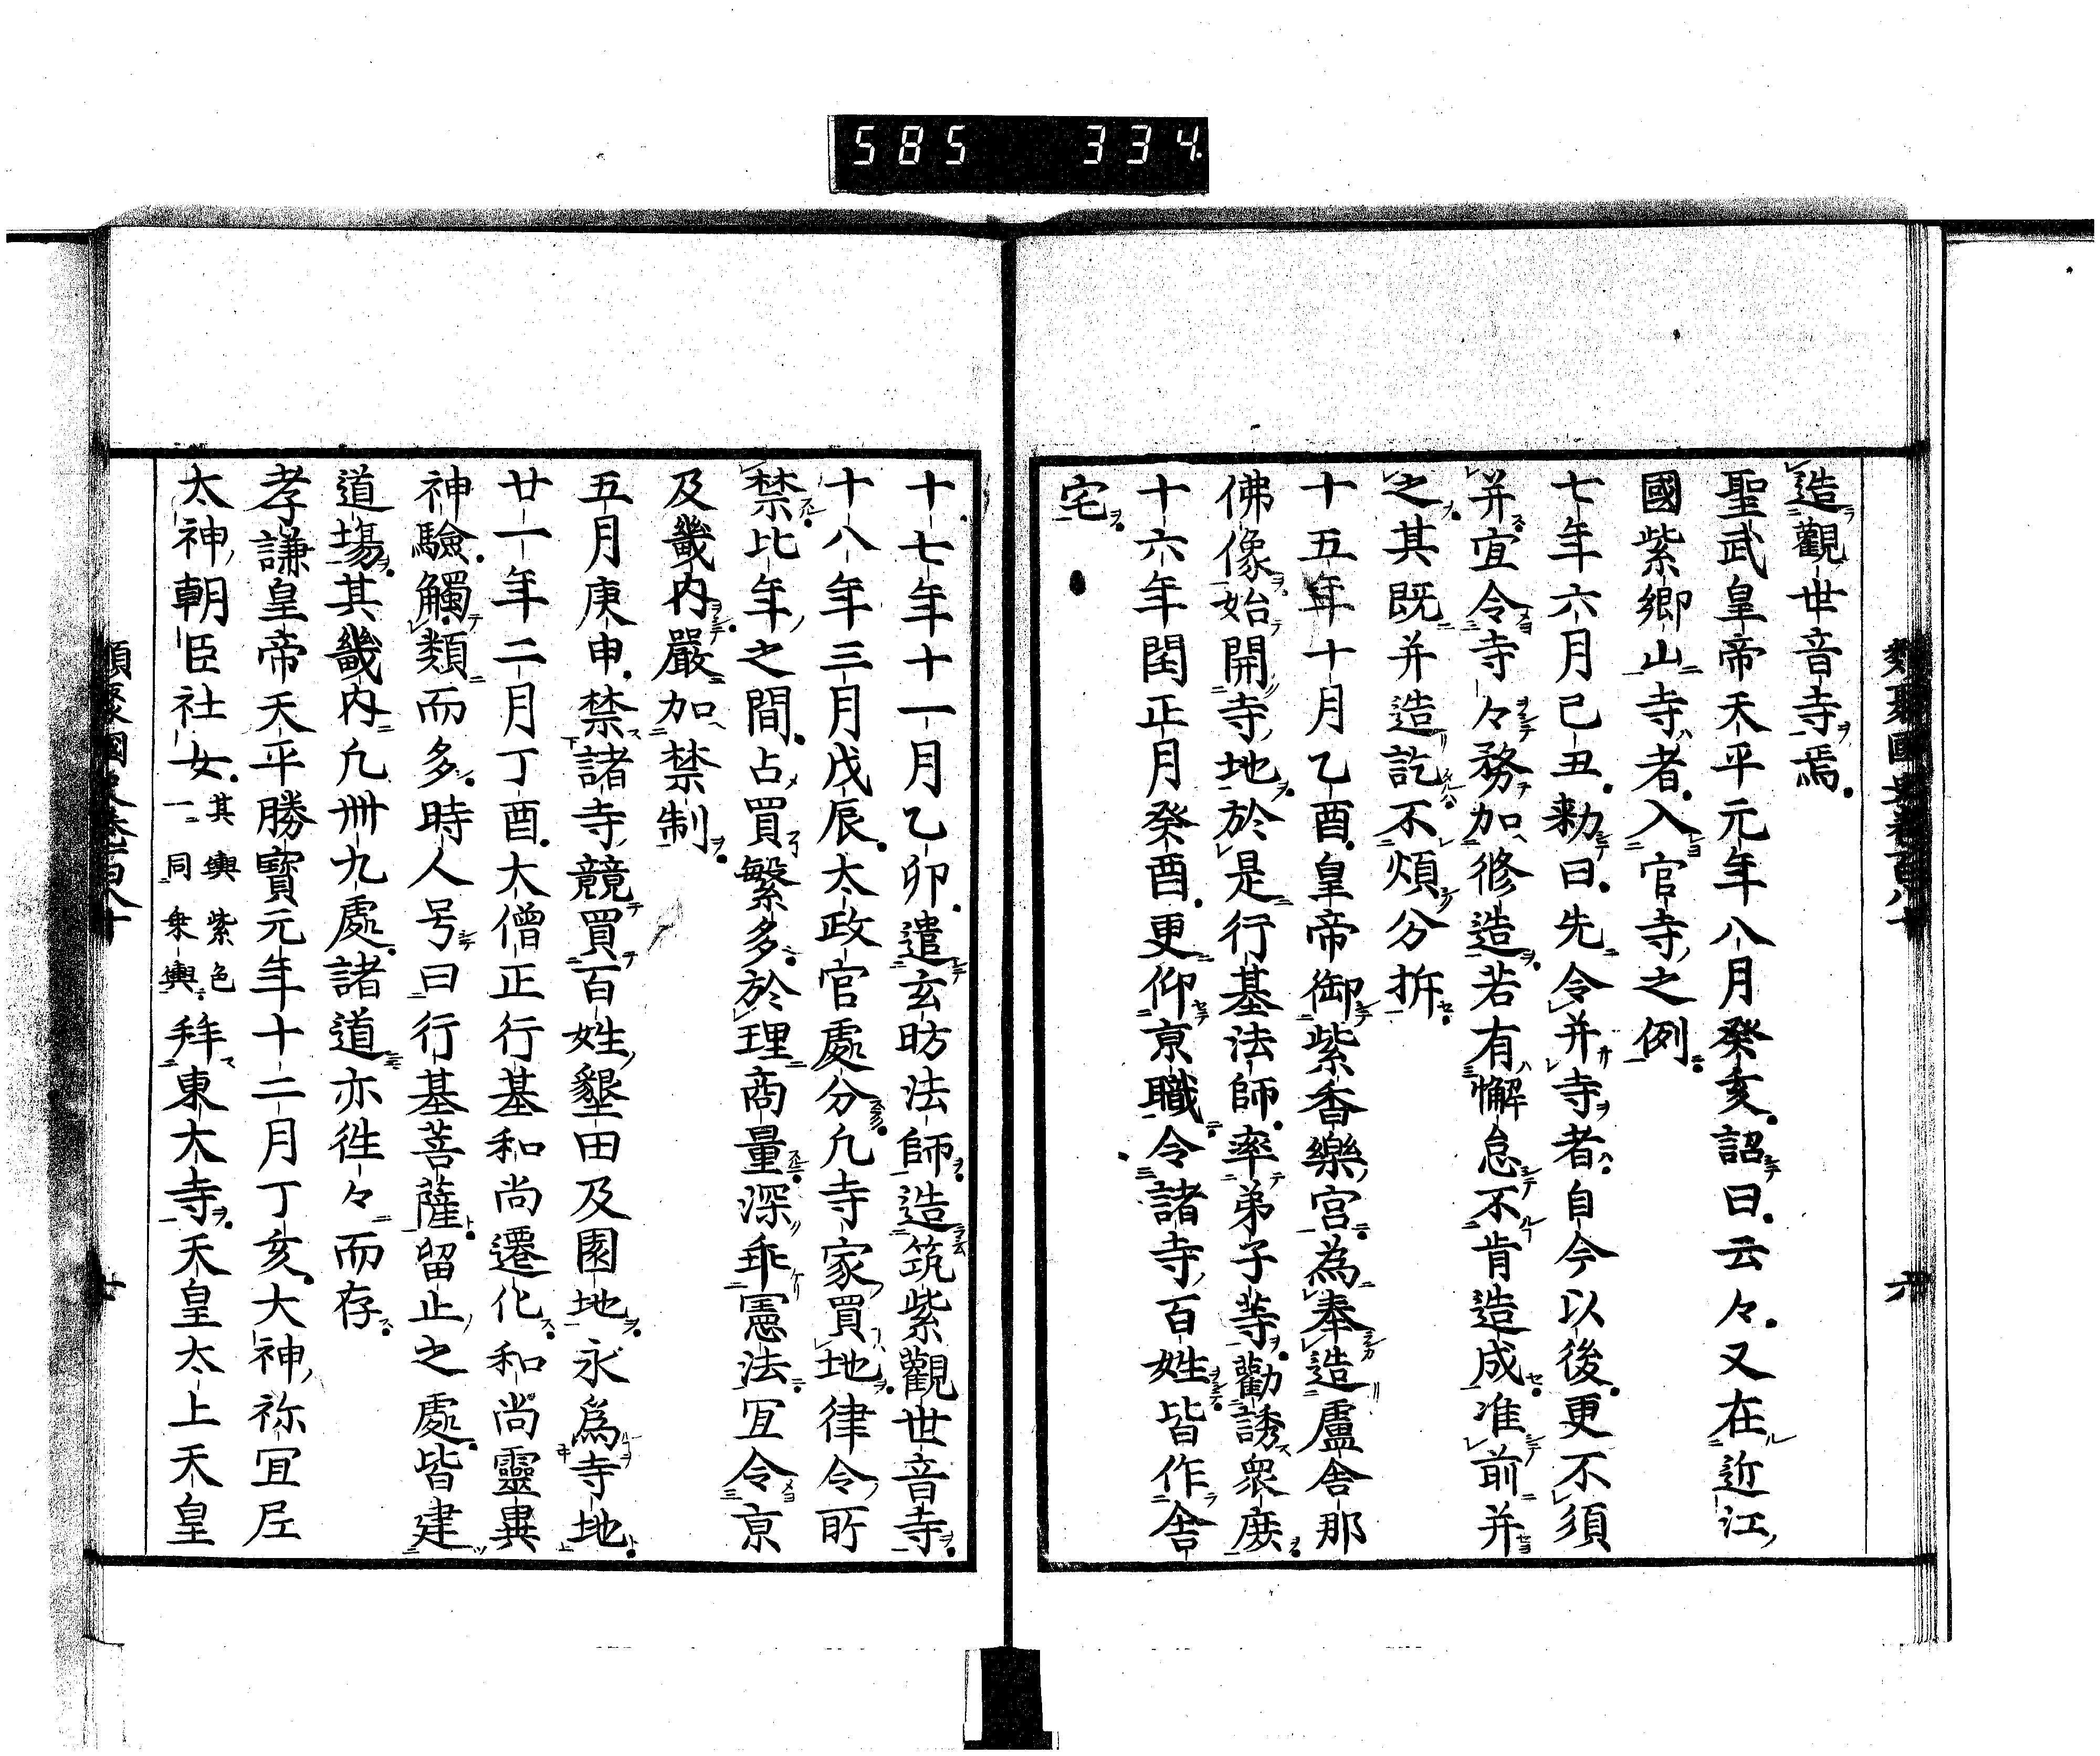 585 334
造觀世音寺焉
聖武皇帝天平元年八月癸亥詔曰云々又在近江
國紫郷山寺者入官寺之例
七年六月己丑勅曰先令并寺者自今以後更不須
并宜令寺々務加修造若有懈怠不肯造成准前并
之其既并造訖不煩分拆
十五年十月乙酉皇帝御紫香樂宮為奉造盧舎那
佛像始開寺地於是行基法師率弟子等勸誘衆庻
十六年閏正月癸酉更仰京職令諸寺百姓皆作舎
宅
十七年十一月乙卯遣玄昉法師造筑紫觀世音寺
十八年三月戊辰太政官處分凢寺家買地律令所
禁比年之間占買繁多於理商量深乖憲法冝令京
及畿内嚴加禁制
五月庚申禁諸寺競買百姓墾田及園地永爲寺地
廿一年二月丁酉大僧正行基和尚遷化和尚靈異
神驗觸類而多時人号曰行基菩薩留止之處皆建
道場其畿内凢卌九處諸道亦徃々而存
孝謙皇帝天平勝寳元年十二月丁亥大神祢冝尼
太神朝臣社女其輿紫色一同乗輿拜東大寺天皇太上天皇